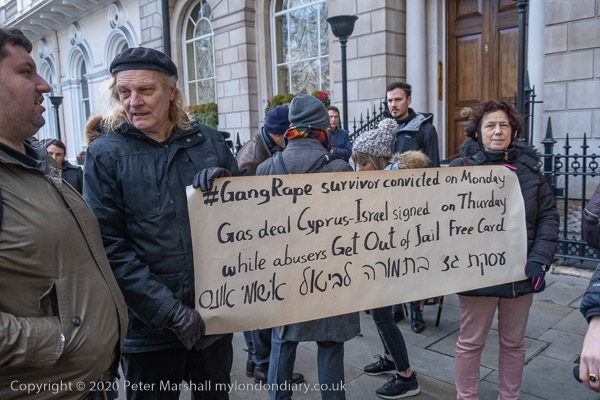 #GangRape survivor convicted on Monday
Gas deal Cyprus-Israel signed on Thurday
while abusers Get Out of Jail Free Card
עסקת גז בתמורה לביאל אשמי אונס
Copyright © 2020 Peter Marshall mylondondiary.co.uk